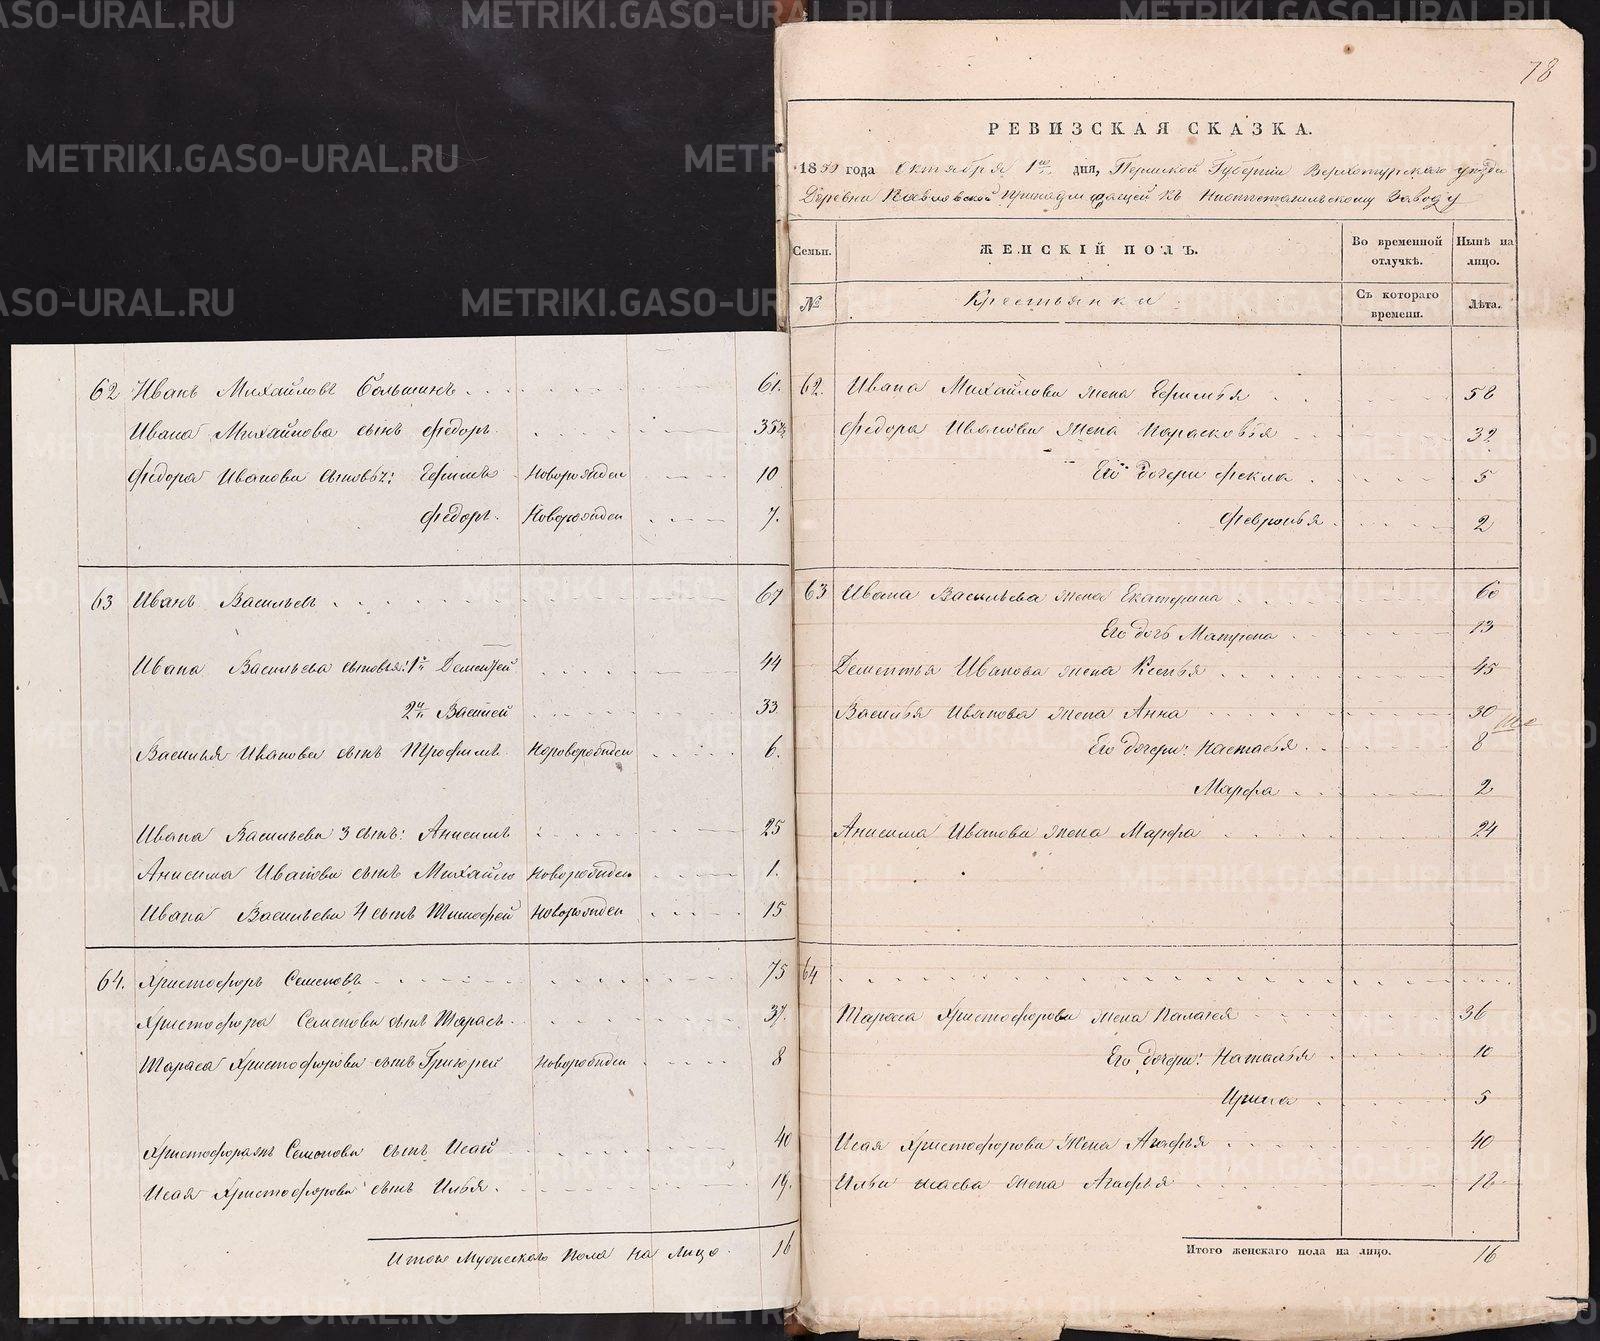 78
РЕВИЗСКАЯ СКАЗКА.
1850 года Октября 1го дня, Пермской Губернии Верхотурскаго уезда
Деревни Павловской принадлежащей къ Нижнетагильскому Заводу
Семьи. ЖЕНСКІЙ ПОЛЪ. Во временной отлучкѣ. Нынѣ на лицо.
№ Крестьянки Съ котораго времени. Лѣта.
62 Иванъ Михайловъ Большинъ 61.
Ивана Михайлова сынъ Федоръ 35
Федора Иванова сыновья: Ефимъ Новорожден 10
Федоръ. Новорожден 7.
63 Иванъ Васильевъ 67
Ивана Васильева сыновья: 1й Дементей 44
2й Василей 33
Василья Иванова сынъ Трофимъ Новорожден 6.
Ивана Васильева 3 сынъ: Анисимъ 25
Анисима Иванова сынъ Михайло Новорожден 1.
Ивана Васильева 4 сынъ Тимофей Новорожден 15
64. Христофоръ Семеновъ 75
Христофора Семенова сынъ Тарасъ 37.
Тараса Христофорова сынъ Григорей Новорожден 8
Семенова сынъ Исай 40
Исая Христофорова сынъ Илья 19.
Итого Мужескаго пола на лицо 16
62. Ивана Михайлова жена Ефимья 58
Федора Иванова жена Парасковья 32
Его дочери Фекла 5
Февронья 2
63 Ивана Васильева жена Екатерина 60
Его дочь Матрена 13
Дементья Иванова жена Ксенья 45
Василья Иванова жена Анна 30
Его дочери: Настасья 8
Марфа 2
Анисима Иванова жена Марфа 24
64
Тараса Христофорова жена Палагея 36
Его дочери: Наталья 10
Ирина 5
Исая Христофорова жена Агафья 40
Ильи Исаева жена Агафья 18
Итого женскаго пола на лицо. 16
METRIKI.GASO-URAL.RU